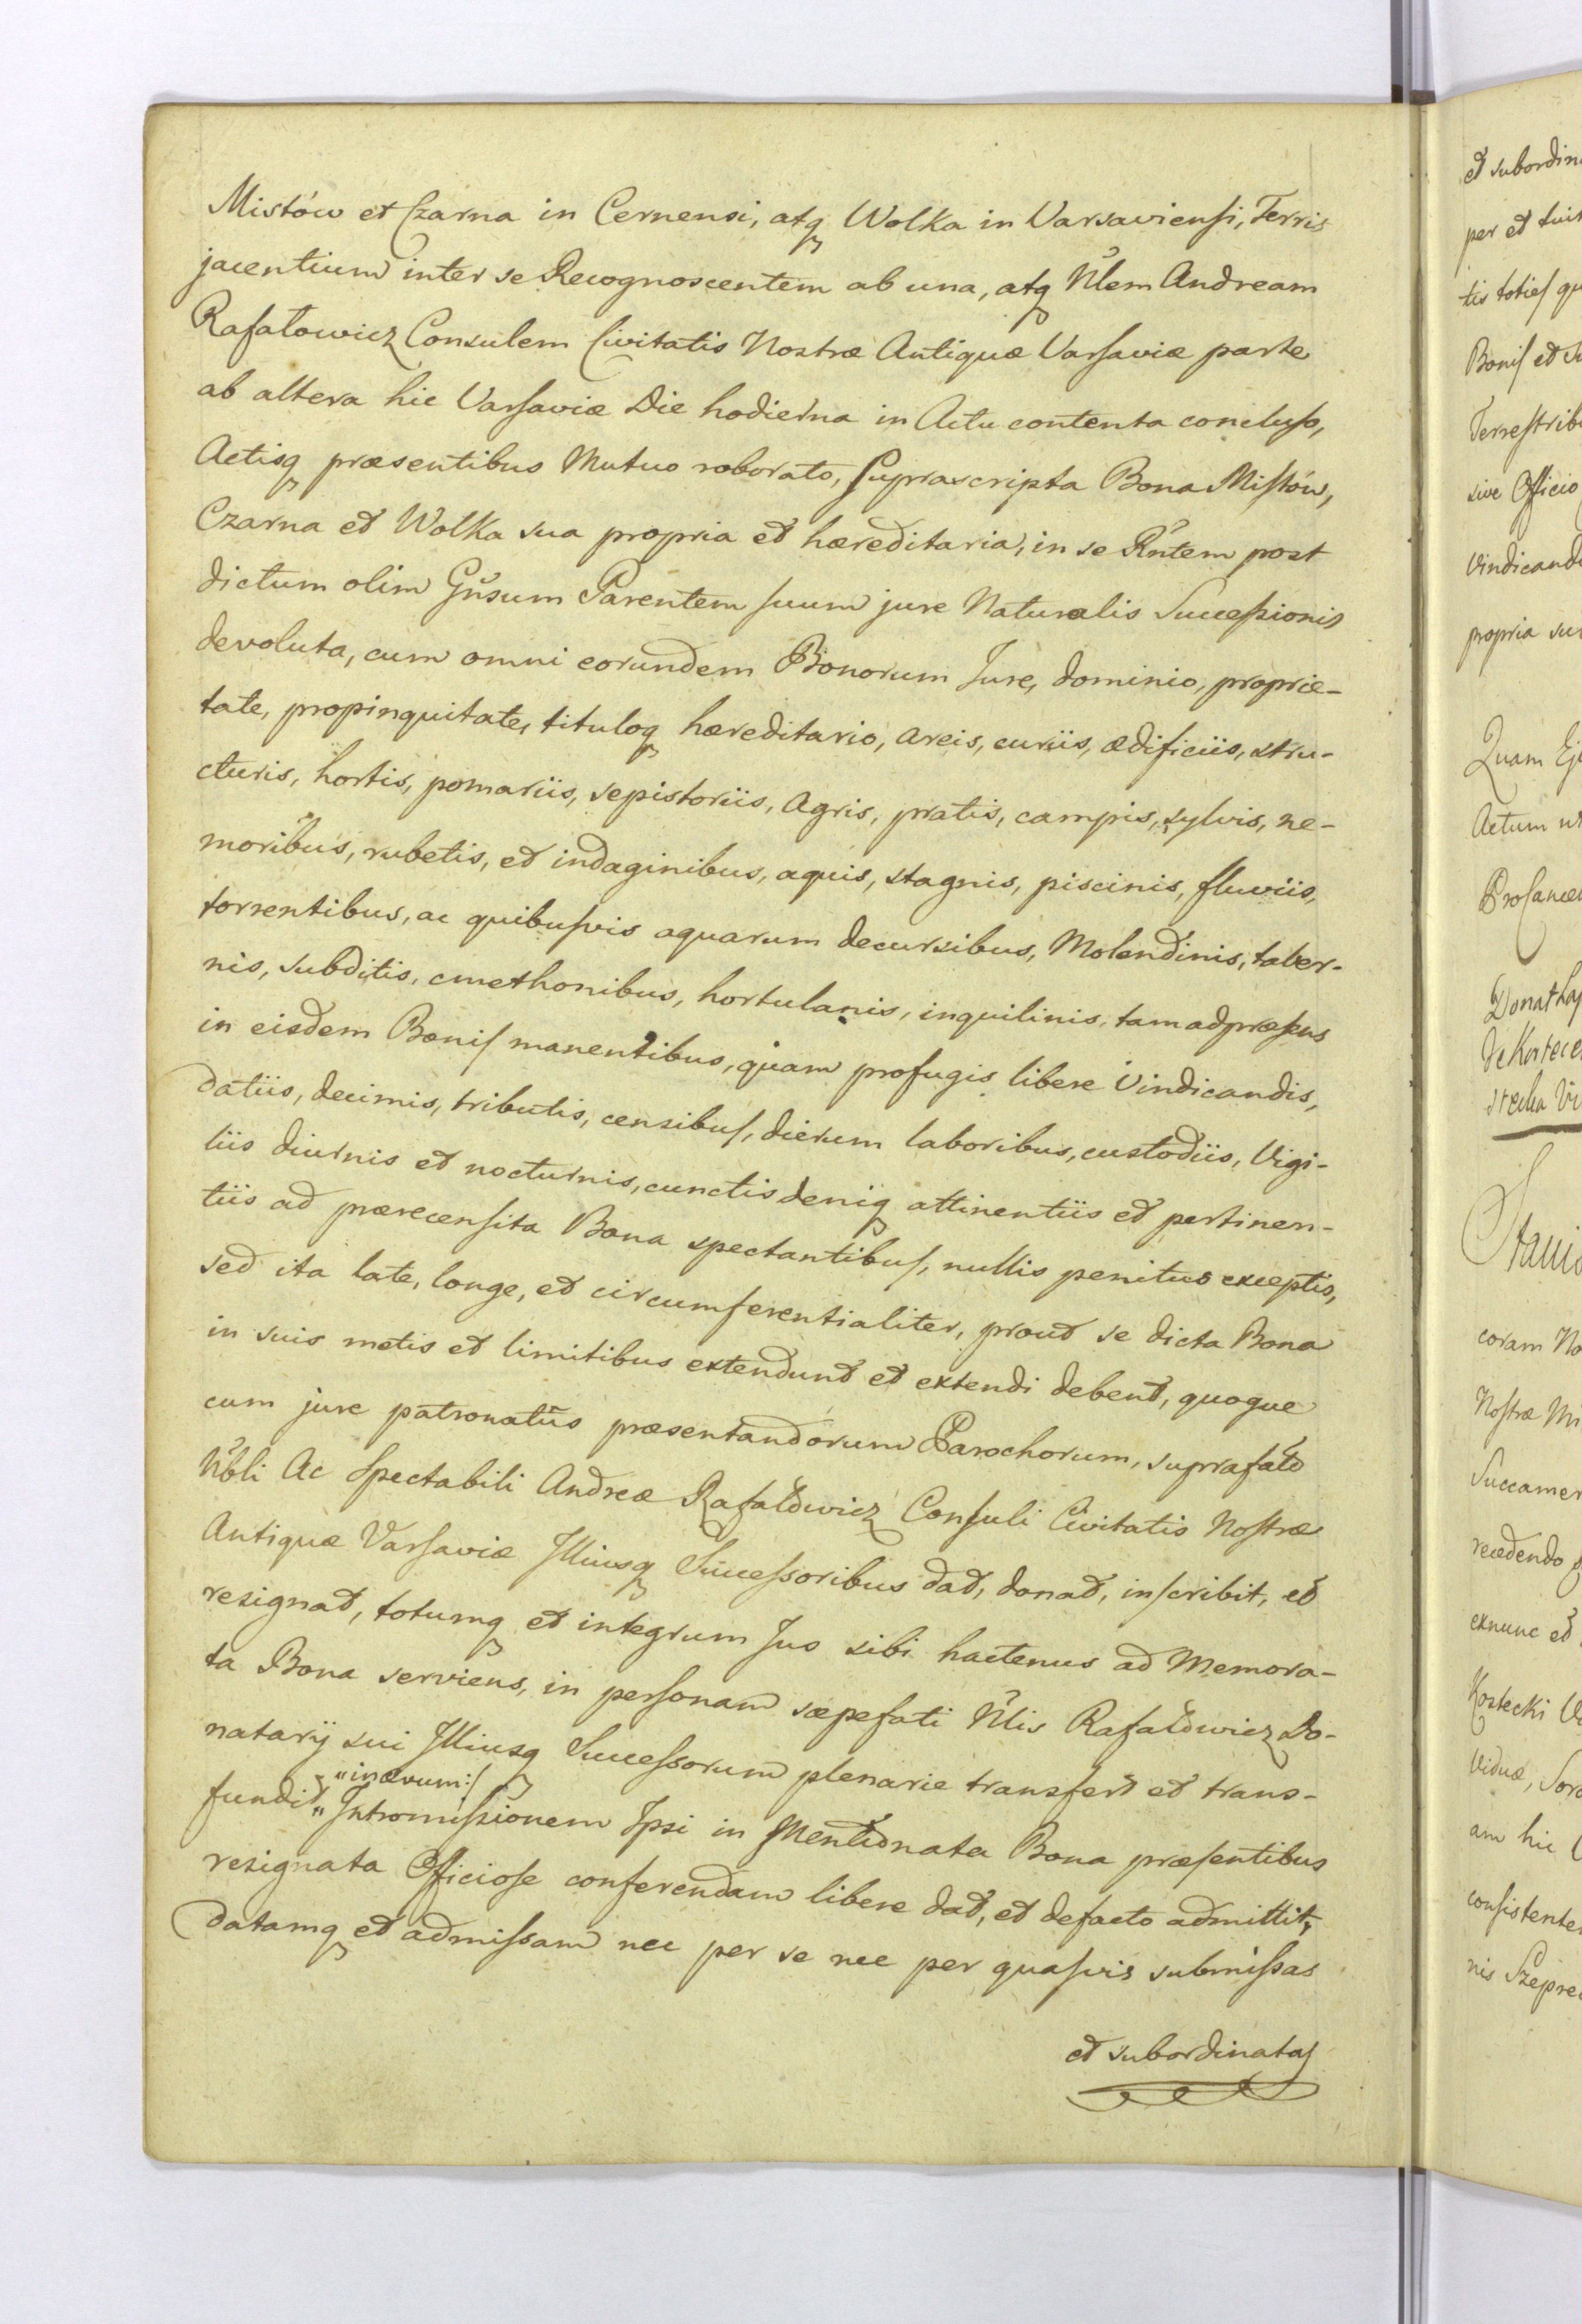 Mistów et Czarna in Cernensi, atq Wolka in Varsaviensi, Terris
jacentium inter se Recognoscentem ab una, atq Nlem Andream
Rafałowicz Consulem Civitatis Nostræ Antiquæ Varsaviæ parte
ab altera hic Varsaviæ Die hodierna in Actu contenta concluso,
Actisq præsentibus Mutuo roborato, Suprascripta Bona Mistów,
Czarna et Wolka sua propria et hæreditaria, in se Rntem post
dictum olim Gnsum Parentem suum jure Naturalis Successionis
devoluta, cum omni eorundem Bonorum Jure, dominio, proprie-
tate, propinquitate, tituloq hæreditario, areis, curiis, ædificiis, stru-
cturis, hortis, pomariis, sepistoriis, Agris, pratis, campis, sylvis, ne-
moribus, rubetis, et indaginibus, aquis, stagnis, piscinis, fluviis,
torrentibus, ac quibusvis aquarum decursibus, Molendinis, taber-
nis, subditis, cmethonibus, hortulanis, inquilinis, tam ad præsens
in eisdem Bonis manentibus, quam profugis libere Vindicandis,
datiis, decimis, tributis, censibus, dierum laboribus, custodiis, Vigi-
liis diurnis et nocturnis, cunctis deniq attinentiis et pertinen-
tiis ad prærecensita Bona spectantibus, nullis penitus exceptis,
sed ita late, longe, et circumferentialiter, prout se dicta Bona
in suis metis et limitibus extendunt et extendi debent, quoque
cum jure patronatûs præsentandorum Parochorum, suprafato
Nbli Ac Spectabili Andreæ Rafałowicz Consuli Civitatis Nostræ
Antiquæ Varsaviæ Illiusq Successoribus dat, donat, inscribit, et
resignat, totumq et integrum Jus sibi hactenus ad Memora-
ta Bona serviens, in personam sæpefati Nlis Rafałowicz Do-
natarij sui Illiusq Successorum plenarie transfert et trans-
"in ævum:/
fundit " Intromissionem Ipsi in Mentionata Bona præsentibus
resignata Officiose conferendam libere dat, et defacto admittit,
datamq et admissam nec per se nec per quasvis submissas
et subordinatas
et subordin
per et
tis toties qu
Bonis et
Terrestrib
sive Officio
Vindicand
propria su
Quam Ej
Actum
Donat
coram No
Nostræ
Succamer
recedendo
exnunc et
Kostecki
Viduæ, Soro
am hic
consistente